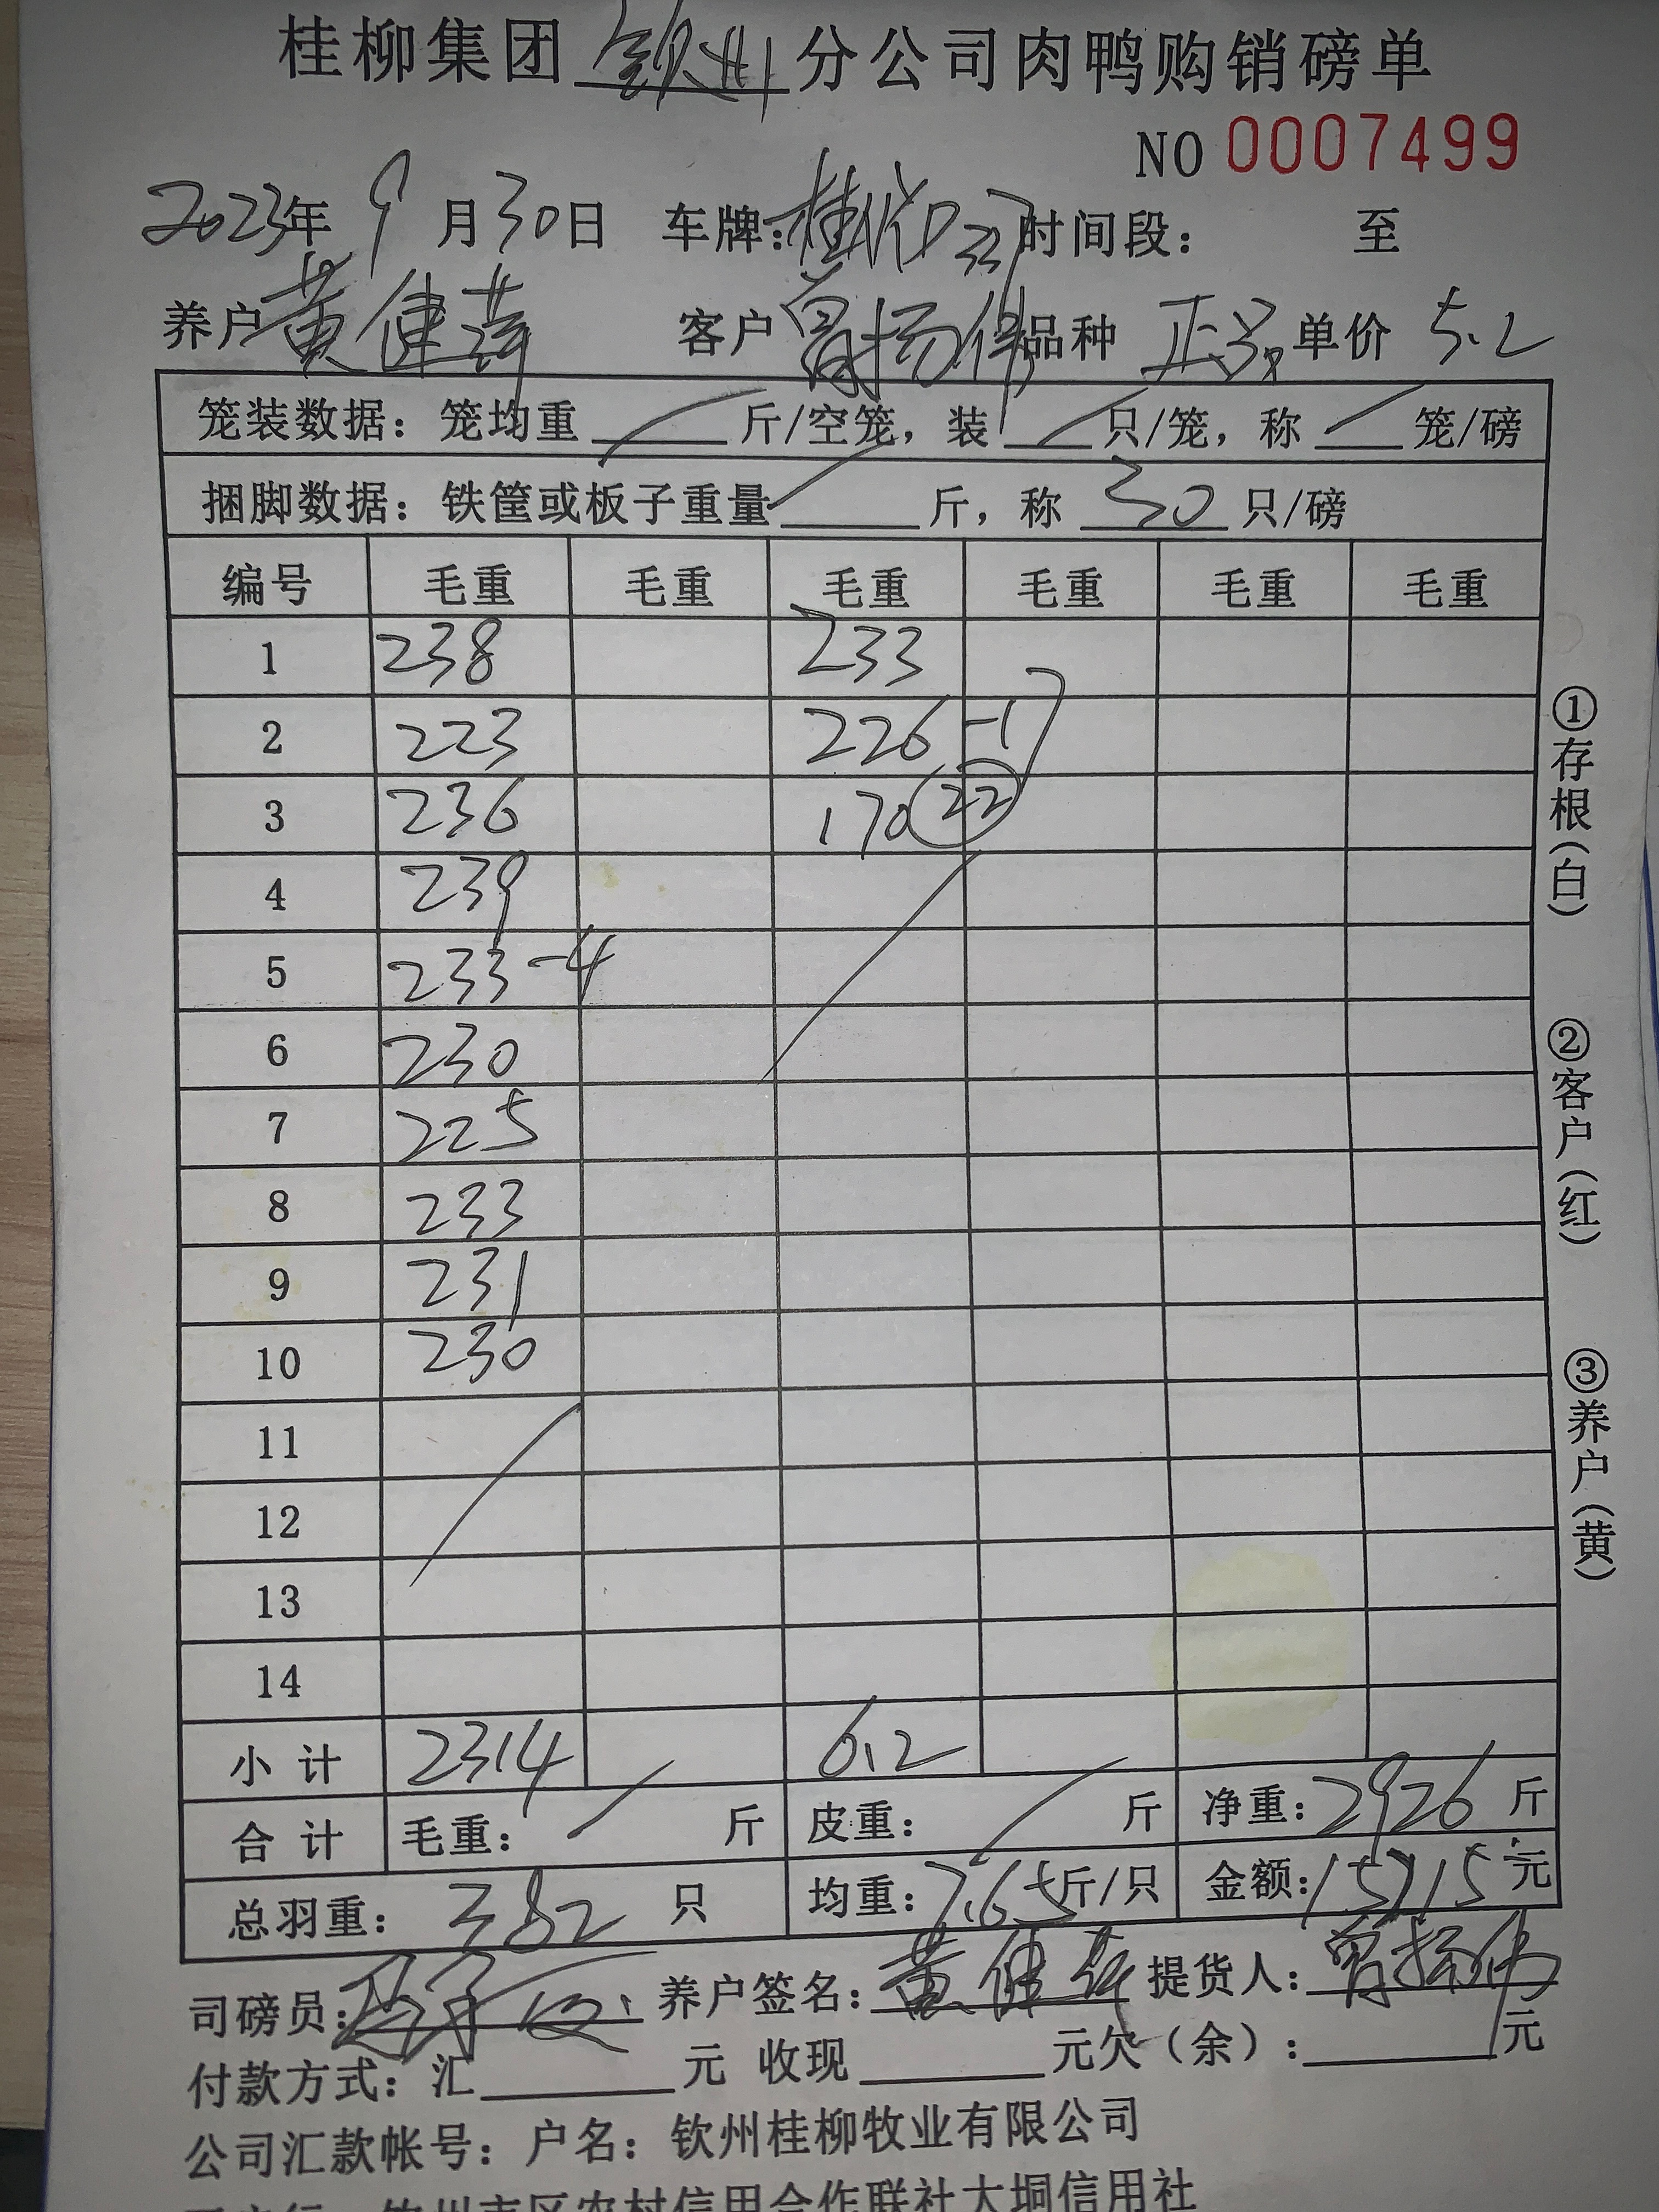 桂柳集团 钦州 分公司肉鸭购销磅单
NO 0007499
2023年 9 月 30 日 车牌: 时间段: 至
养户 黄健 客户 曾扬伟 品种 正品 单价 5.2
笼装数据: 笼均重 斤/空笼, 装 只/笼, 称 笼/磅
捆脚数据: 铁筐或板子重量 斤, 称 30 只/磅
编号 毛重 毛重 毛重 毛重 毛重 毛重
1 238 233
2 223 226 -1
3 236 170 22
4 239
5 233 -4
6 230
7 225
8 233
9 231
10 230
11
12
13
14
小计 2314 612
合计 毛重: 斤 皮重: 斤 净重: 2926 斤
总羽重: 382 只 均重: 7.65 斤/只 金额: 15215 元
司磅员: 养户签名: 黄健 提货人: 曾扬伟
付款方式: 汇 元 收现 元欠(余): 元
公司汇款帐号: 户名: 钦州桂柳牧业有限公司
钦州市区农村信用合作联社大垌信用社
①存根(白)
②客户(红)
③养户(黄)